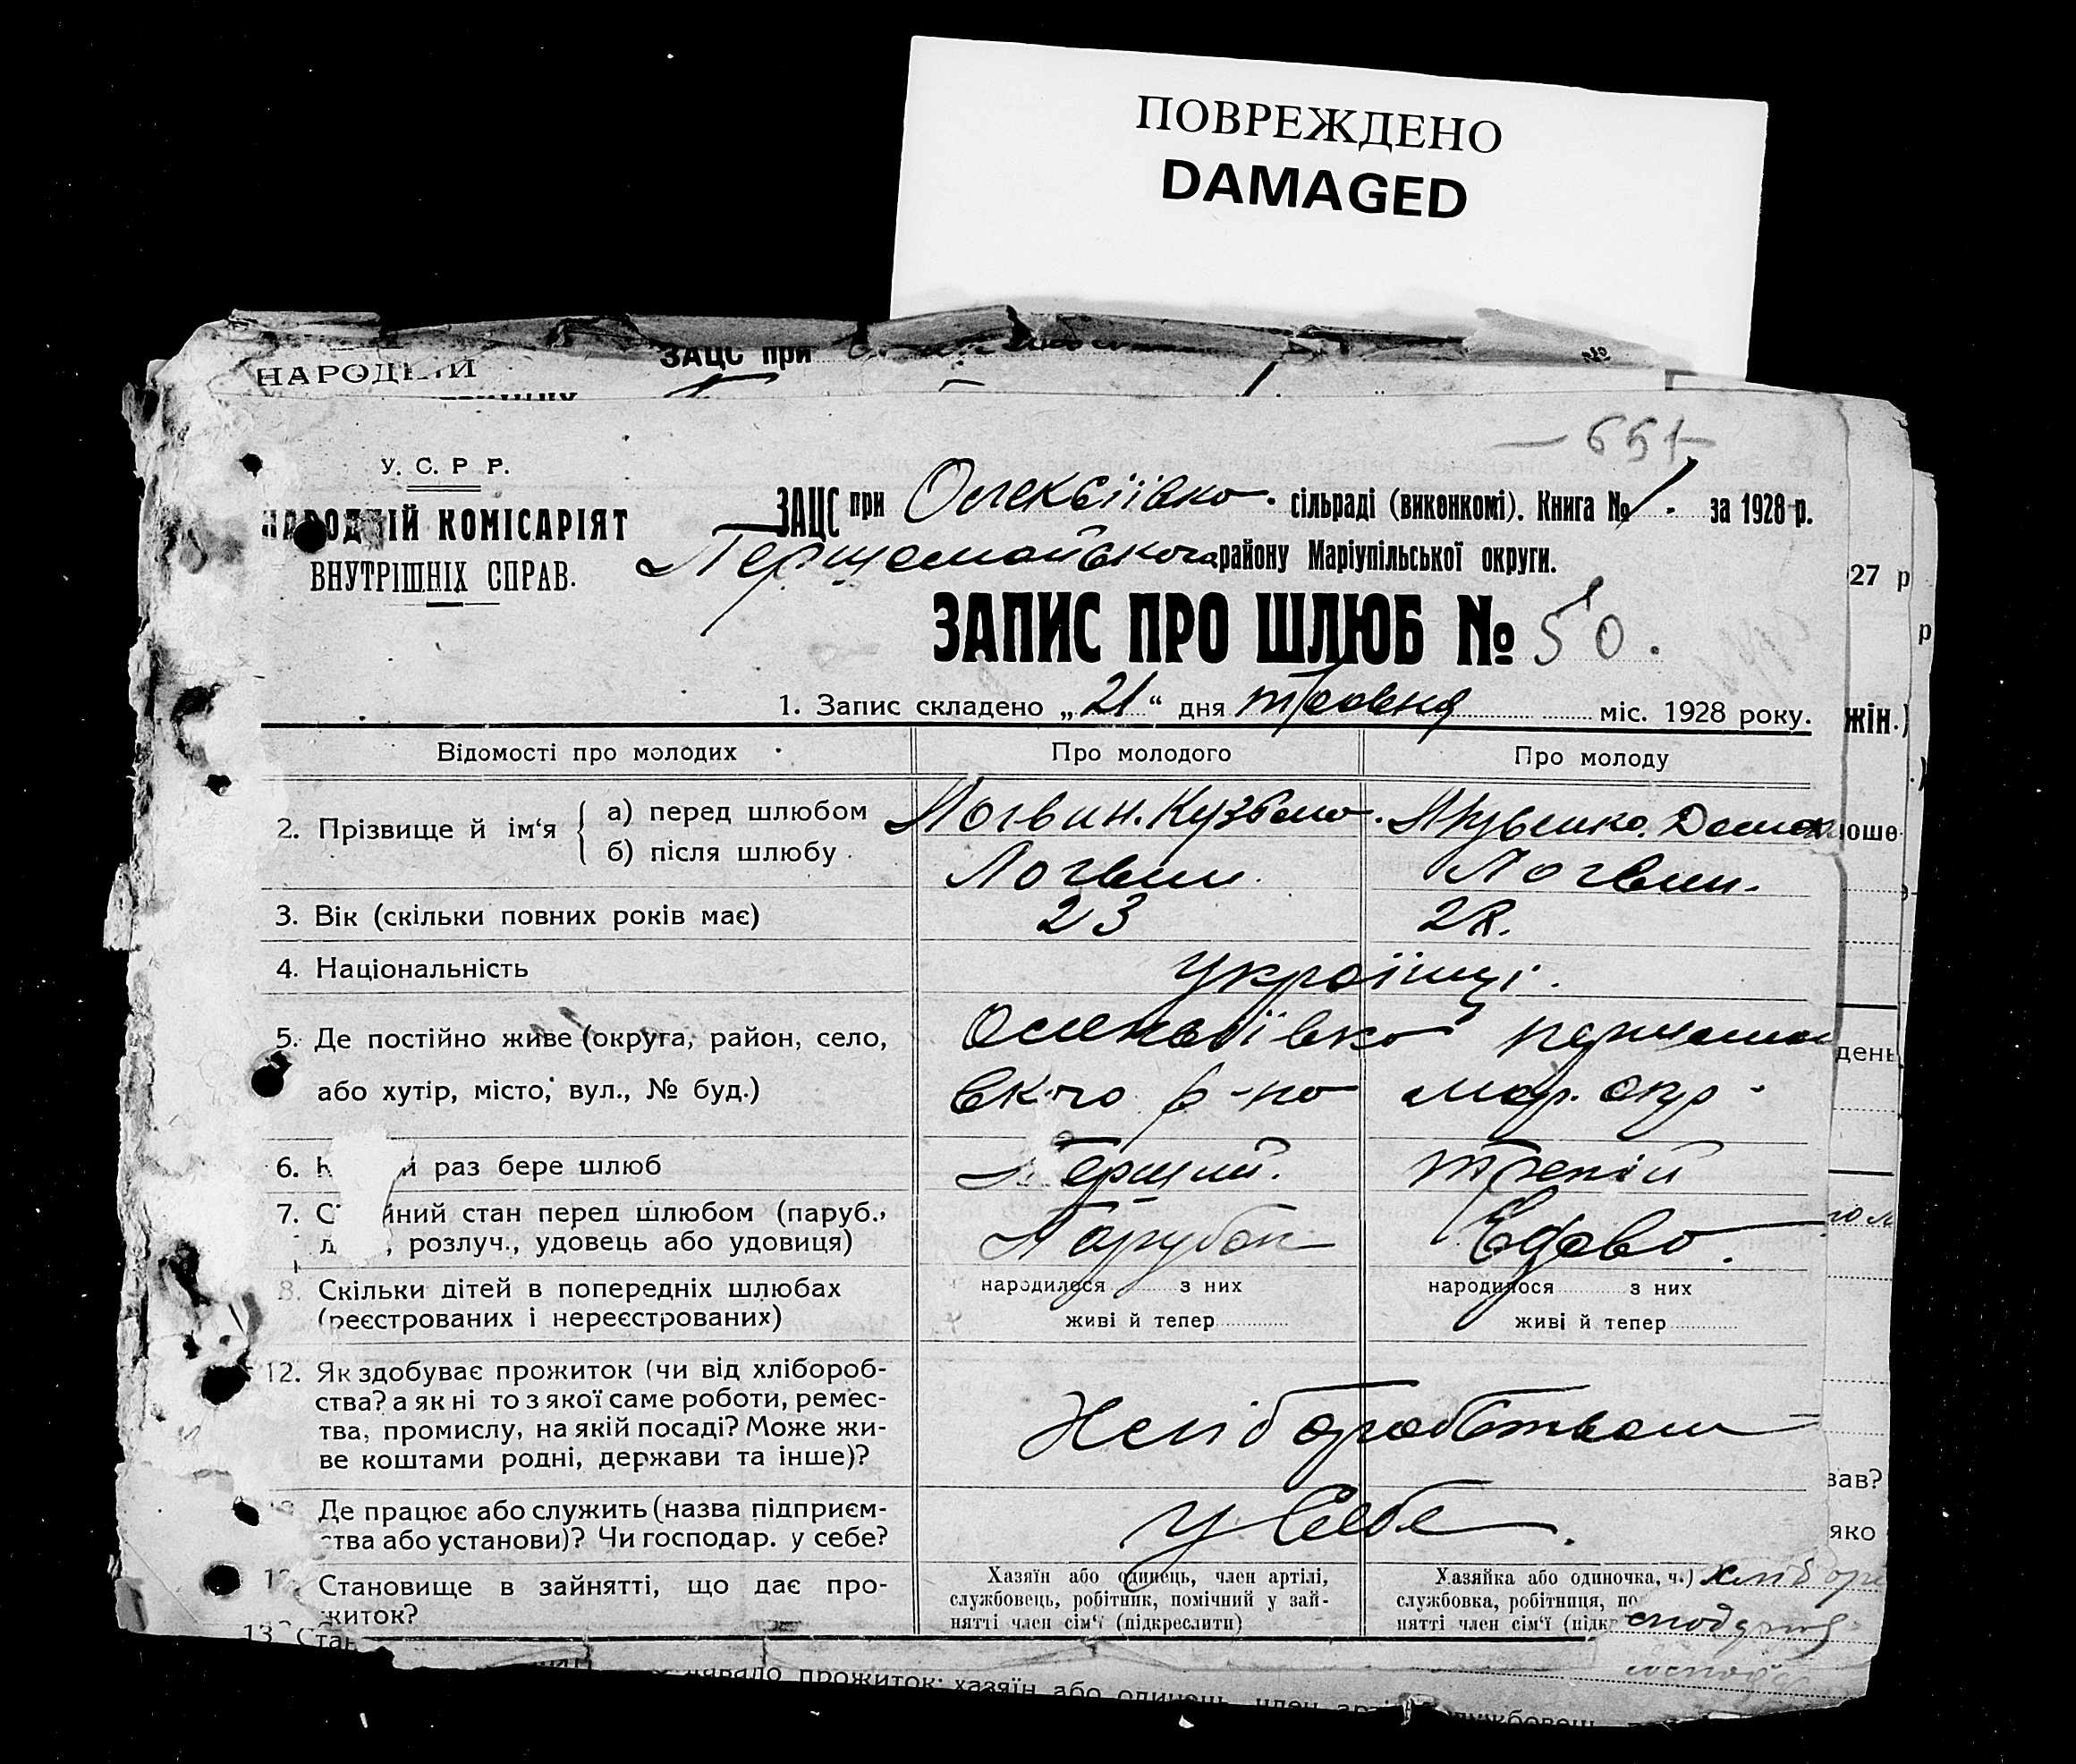 ПОВРЕЖДЕНО
DAMAGED
ЗАЦС при
— 651 —
У. С. Р. Р.
НАРОДНІЙ КОМІСАРІЯТ
ВНУТРІШНІХ СПРАВ.
ЗАЦС при Олексіївко. сільраді (виконкомі). Книга № 1. за 1928 р.
Першемайського району Маріупільської округи.
27 р
ЗАПИС ПРО ШЛЮБ № 50.
1. Запис складено „21“ дня травня міс. 1928 року.
жін.)
Відомості про молодих Про молодого Про молоду
2. Прізвище й ім‘я { а) перед шлюбом Логвин. Кузьма.
б) після шлюбу Логвин. Логвин.
3. Вік (скільки повних років має) 23
4. Національність Українці.
5. Де постійно живе (округа, район, село,
день
або хутір, місто, вул., № буд.) вкого р-на мар. окр.
6. й раз бере шлюб Перший. третій
7. йний стан перед шлюбом (паруб., Парубок Вдова.
розлуч., удовець або удовиця)
8. Скільки дітей в попередніх шлюбах народилося з них народилося з них
(реєстрованих і нереєстрованих) живі й тепер живі й тепер
12. Як здобуває прожиток (чи від хлібороб-
ства? а як ні то з якої саме роботи, ремес-
тва, промислу, на якій посаді? Може жи- Хліборобством
ве коштами родні, держави та інше)?
зав?
Де працює або служить (назва підприєм- у себе.
ства або установи)? Чи господар. у себе?
яко
Становище в зайнятті, що дає про- Хазяїн або одинець, член артілі, Хазяйка або одиночка, ч.)
житок? службовець, робітник, помічний у зай- службовка, робітниця, по
нятті член сім‘ї (підкреслити) нятті член сім‘ї (підк
13. Стан
прожиток: хазяїн або одинець, член